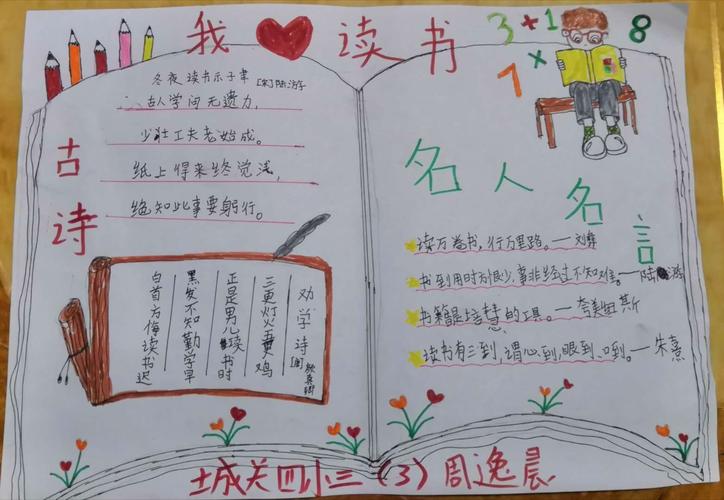 我❤读书
3+1
8
7×
古诗
冬夜读书示子聿 [宋]陆游
古人学问无遗力，
少壮工夫老始成。
纸上得来终觉浅，
绝知此事要躬行。
劝学诗 [唐]颜真卿
三更灯火五更鸡
正是男儿读书时
黑发不知勤学早
白首方悔读书迟
名人名言
读万卷书，行万里路。——刘彝
书到用时方恨少，事非经过不知难。——陆游
书籍是培 慧的工具。——夸美纽斯
读书有三到，谓心到，眼到，口到。——朱熹
城关四小三（3）周逸晨